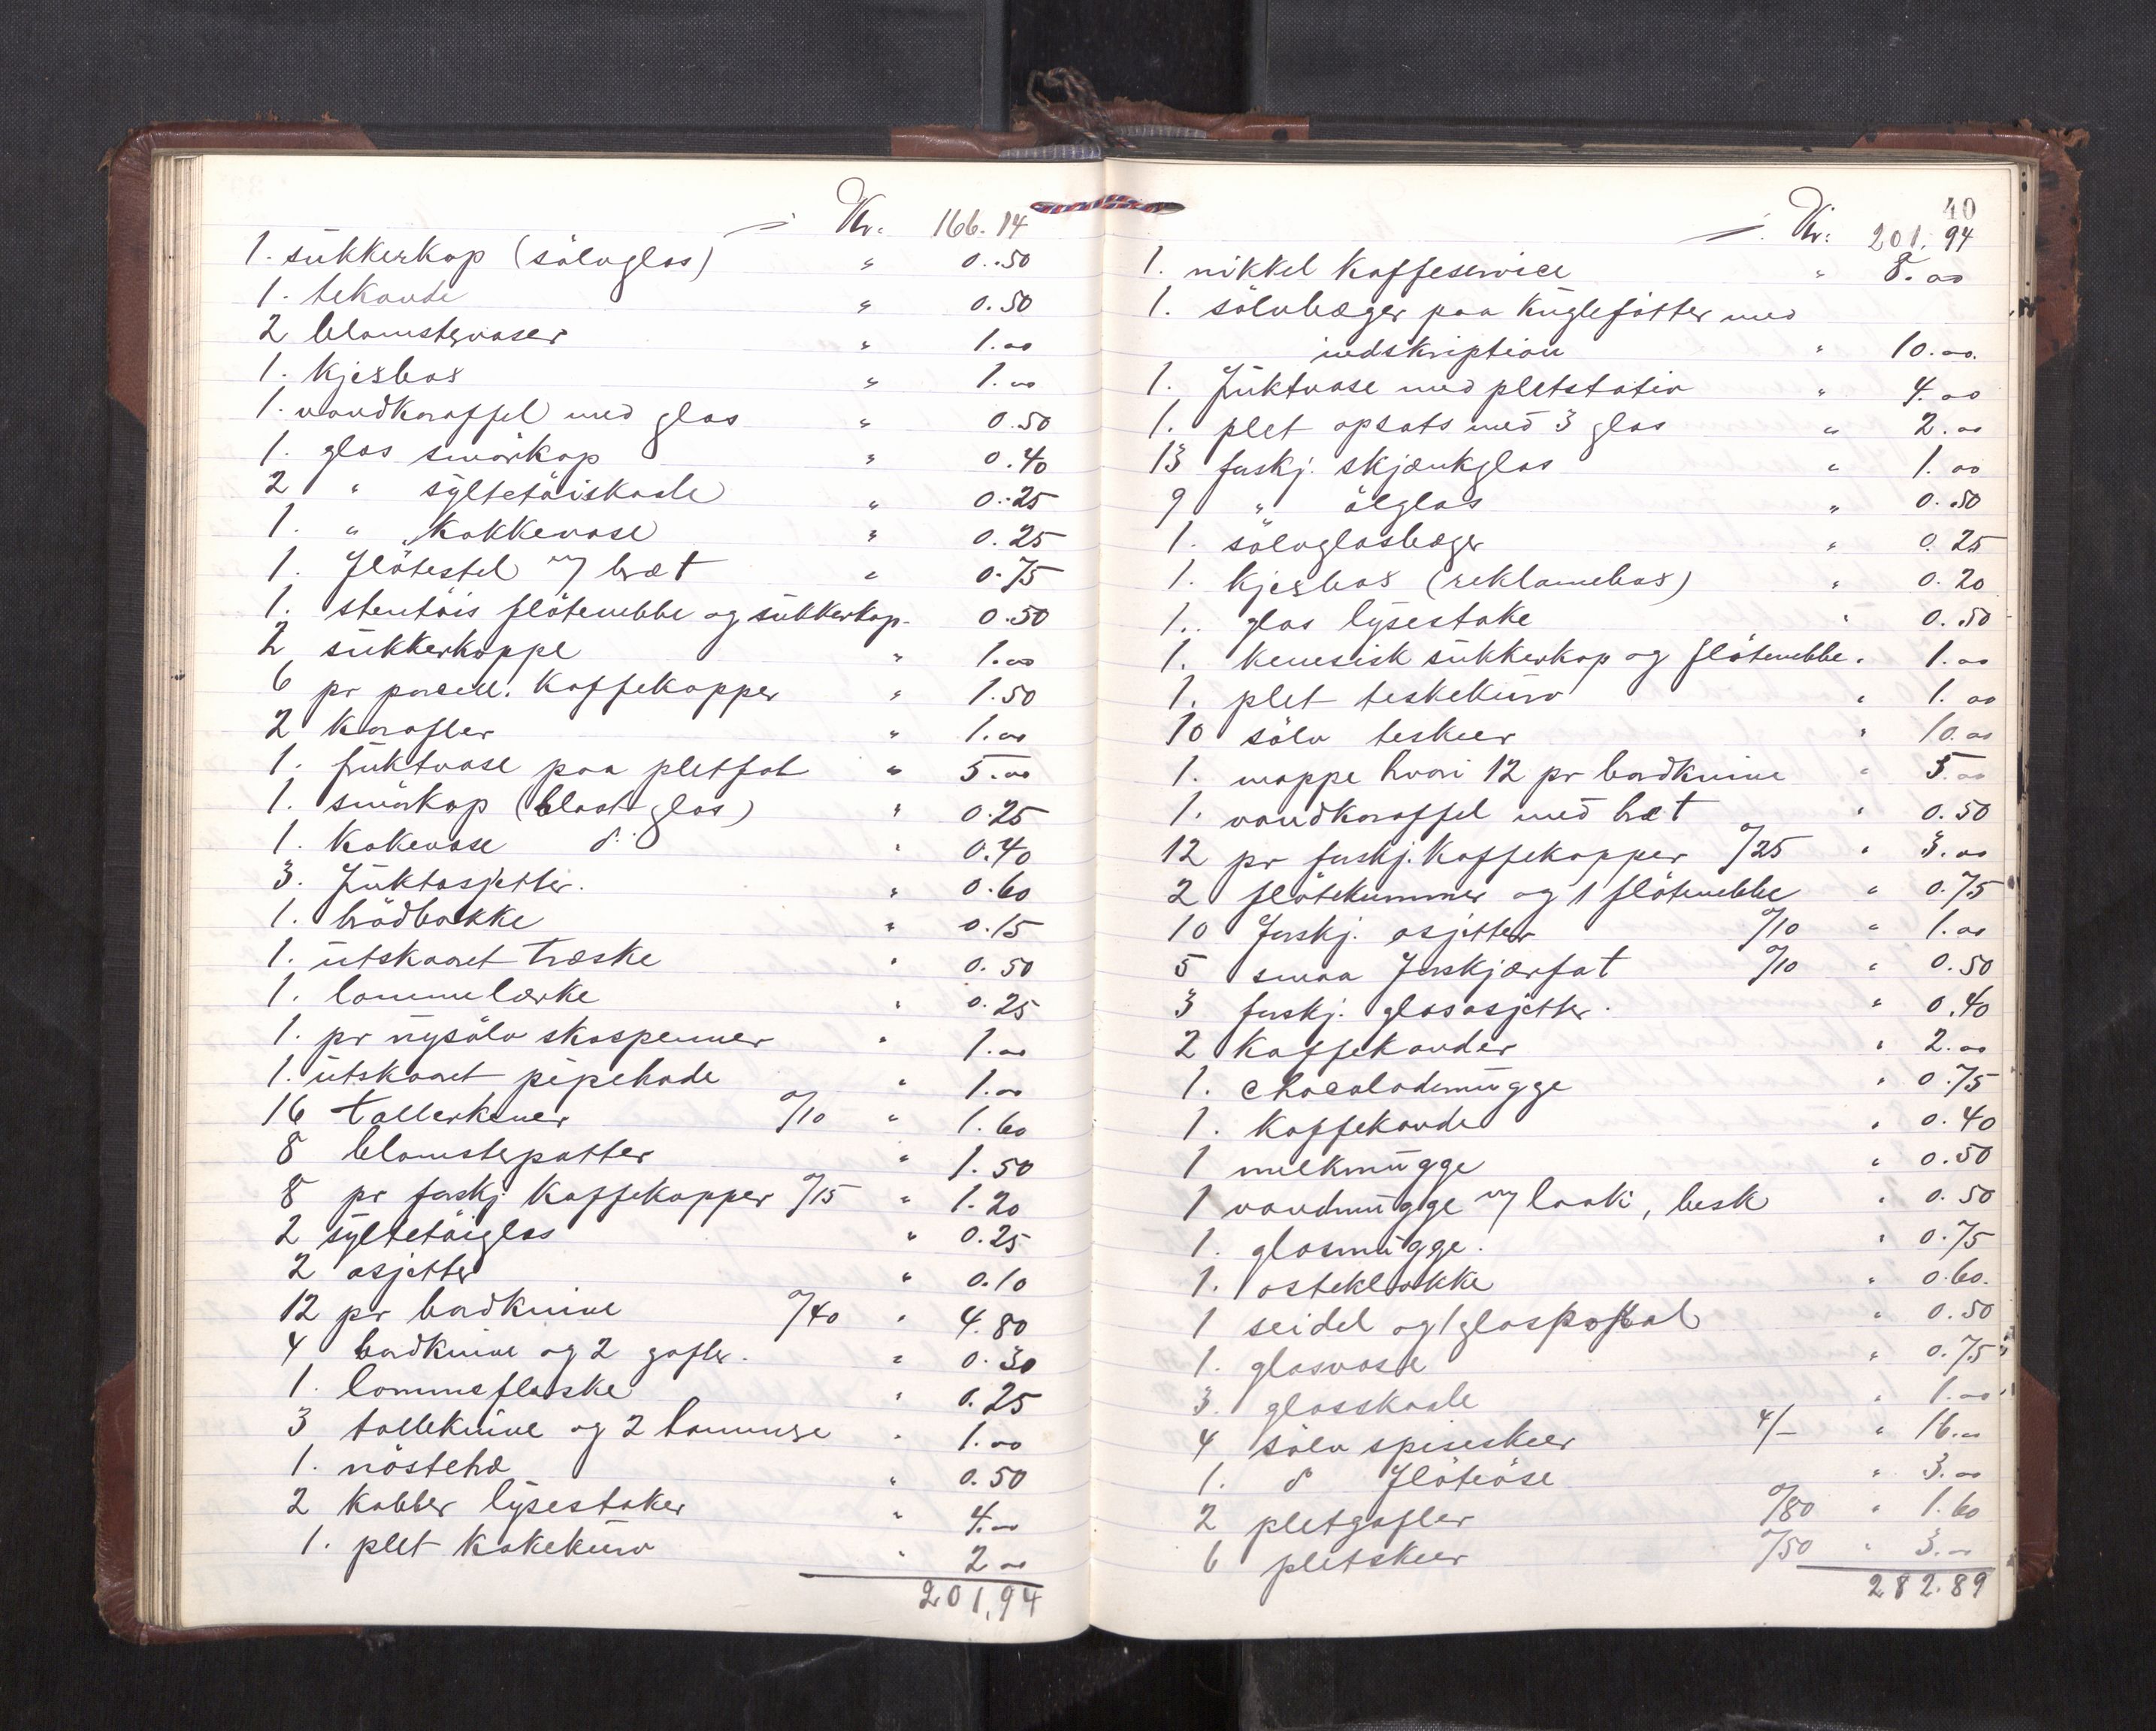 Kr. 166.14
1. sukkerkop (sölvglas) " 0.50
1. tekande " 0.50
2 blomstervaser " 1.00
1. kjexbox " 1.00
1. vandkaraffel med glas " 0.50
1. glas smörkop " 0.40
2 " syltetöiskaale " 0.25
1. " kakkevase " 0.25
1. flötestel m/ bræt " 0.75
1. stentöis flötenebbe og sukkerkop 0.50
2 sukkerkoppe " 1.00
6 pr porcell. kaffekopper " 1.50
2 karafler " 1.00
1. fruktvase paa pletfat " 5.00
1. smörkop (blaat glas) " 0.25
1. kakevase do " 0.40
3. fruktasjetter. " 0.60
1. brödbakke " 0.15
1. utskaaret træske " 0.50
1. lommelærke " 0.25
1. pr nysölv skospenner " 1.00
1. utskaaret pipehode " 1.00
16 tallerkener 0/10 " 1.60
8 blomsterpotter " 1.50
8 pr forskj kaffekopper 0/15 " 1.20
2 syltetöiglas " 0.25
2 asjetter " 0.10
12 pr bordknive 0/40 " 4.80
4 bordknive og 2 gafler. " 0.30
1. lommeflaske " 0.25
3 tolleknive og 2 lommure " 1.00
1. nöstehæ " 0.50
2 kobber lysestaker " 4.00
1. plet kakekurv " 2.00
201,94
40
Kr: 201,94
1. nikkel kaffeservice " 8.00
1. sölvbæger paa kuglefötter med
indskription " 10.00.
1. fruktvase med pletstativ " 4.00
1. plet opsats med 3 glas " 2.00
13 forskj. skjænkglas " 1.00
9 " ölglas " 0.50
1. sölvglasbæger " 0.25
1. kjexbox (reklamebox) " 0.20
1. glas lysestake " 0.50
1. kinesisk sukkerkop og flötenebbe " 1.00
1. plet teskekurv " 1.00
10 sölv teskeer " 10.00
1. mappe hvori 12 pr bordknive " 5.00
1. vandkaraffel med bræt " 0.50
12 pr forskj. kaffekopper 0/25 " 3.00
2 flötekummer og 1 flötenebbe " 0.75
10 forskj. asjetter 0/10 " 1.00
5 smaa forskjærfat 0/10 " 0.50
3 forskj. glasasjetter. " 0.40
2 kaffekander " 2.00
1. chocolademugge " 0.75
1. kaffekande " 0.40
1 melkmugge " 0.50
1 vandmugge m/ laak, besk " 0.50
1. glasmugge. " 0.75
1. osteklokke " 0.60.
1 seidel og 1 glaspokal " 0.50
1. glasvase " 0.75
3. glasskaale " 1.00
4 sölv spiseskeer 4/- " 16.00
1. do flöteöse " 3.00
2 pletgafler 0/80 " 1.60
6 pletskeer 0/50 " 3.00
282.89